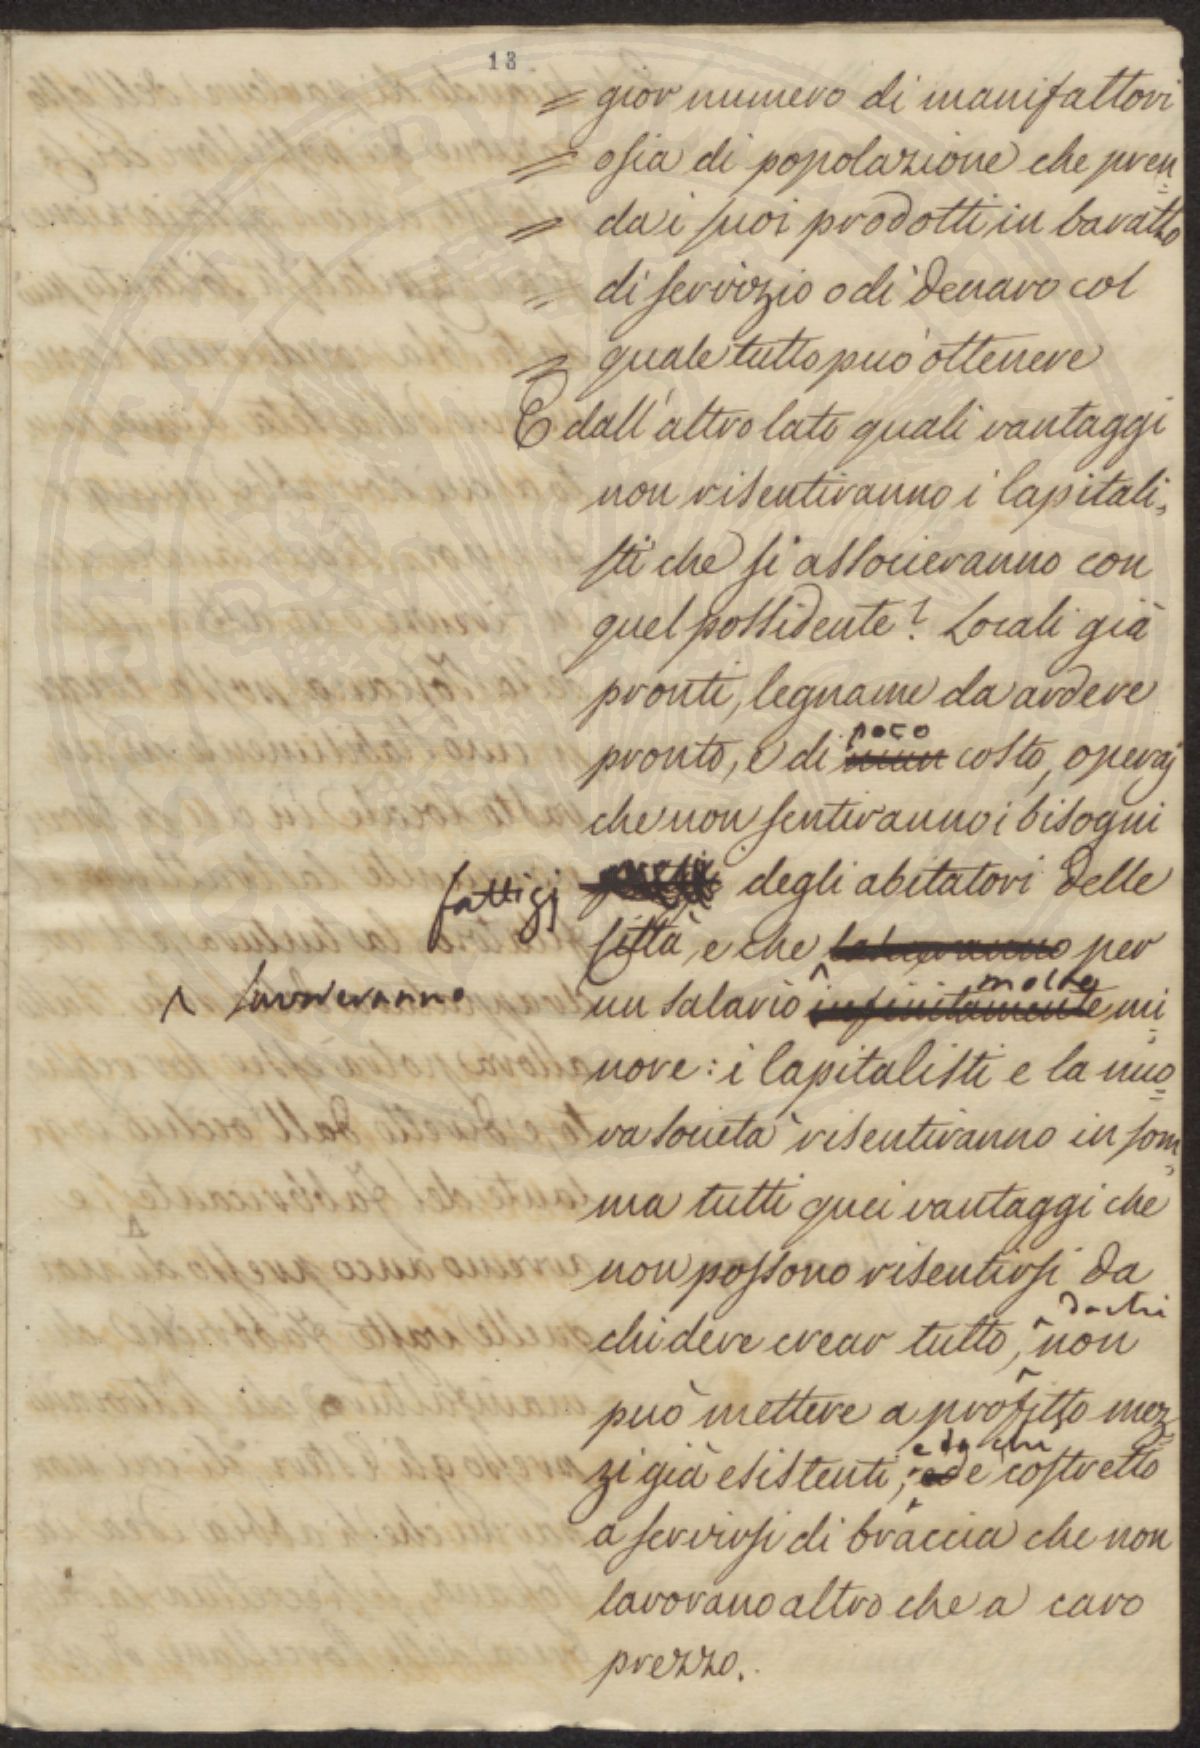 13
= gior numero di manifattori
= osia di popolazione che pren=
= da i suoi prodotti in baratto
= di servizio o di denaro col
= quale tutto può ottenere
E dall'altro lato quali vantaggi
non risentiranno i Capitali=
sti che si associeranno con
quel possidente? Locali già
pronti, legname da ardere
poco
pronto, e di costo, operaj
che non sentiranno i bisogni
fattizj degli abitatori delle
Città, e che lavoreranno per
^ lavoreranno
molto
un salario ^ infinitamente mi=
nore: i Capitalisti e la nuo=
va società risentiranno in som=
ma tutti quei vantaggi che
non possono risentirsi da
da chi
chi deve crear tutto, ^ non
può mettere a profitto mez=
e da chi
zi già esistenti, ed è costretto
a servirsi di braccia che non
lavorano altro che a caro
prezzo.